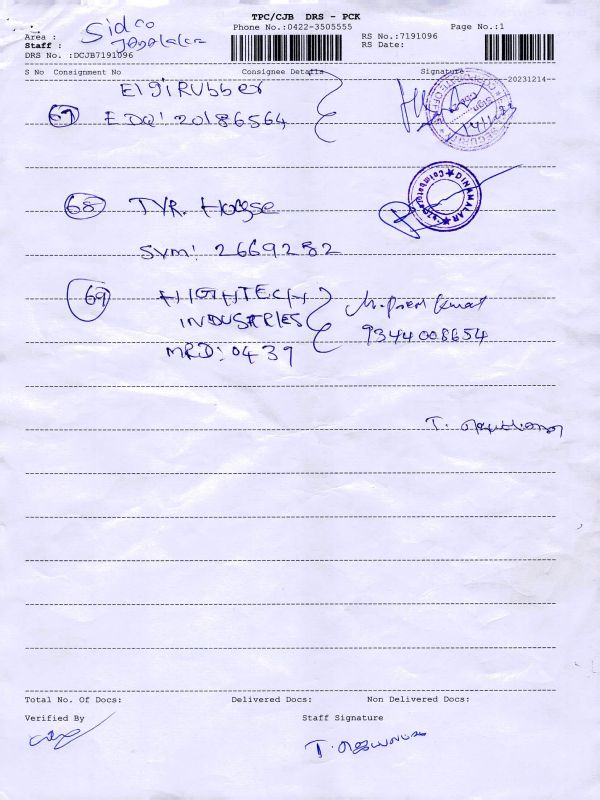 TPC/CJB DRS - PCK
Phone No.:0422-3505555
Page No.:1
Area : Sidco
Staff :
RS No.:7191096
RS Date:
DRS No. :DCJB7191096
S No Consignment No Consignee Details Signature
20231214
67 Elgi Rubber
EDQ: 20186564
68 TVR. House
SVM: 2669282
DINAMALAR
Coimbatore
69 HIGHTECH
INDUSTRIES
MRD: 0439
9344008654
Total No. Of Docs: Delivered Docs: Non Delivered Docs:
Verified By Staff Signature